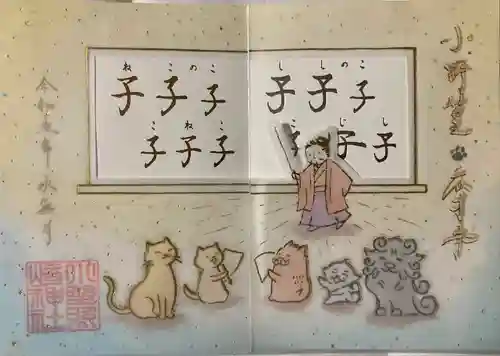 小野篁
ねこのこ
子子子
こねこ
子子子
ししのこ
子子子
こじし
子子子
令和
水無月
小野照崎神社